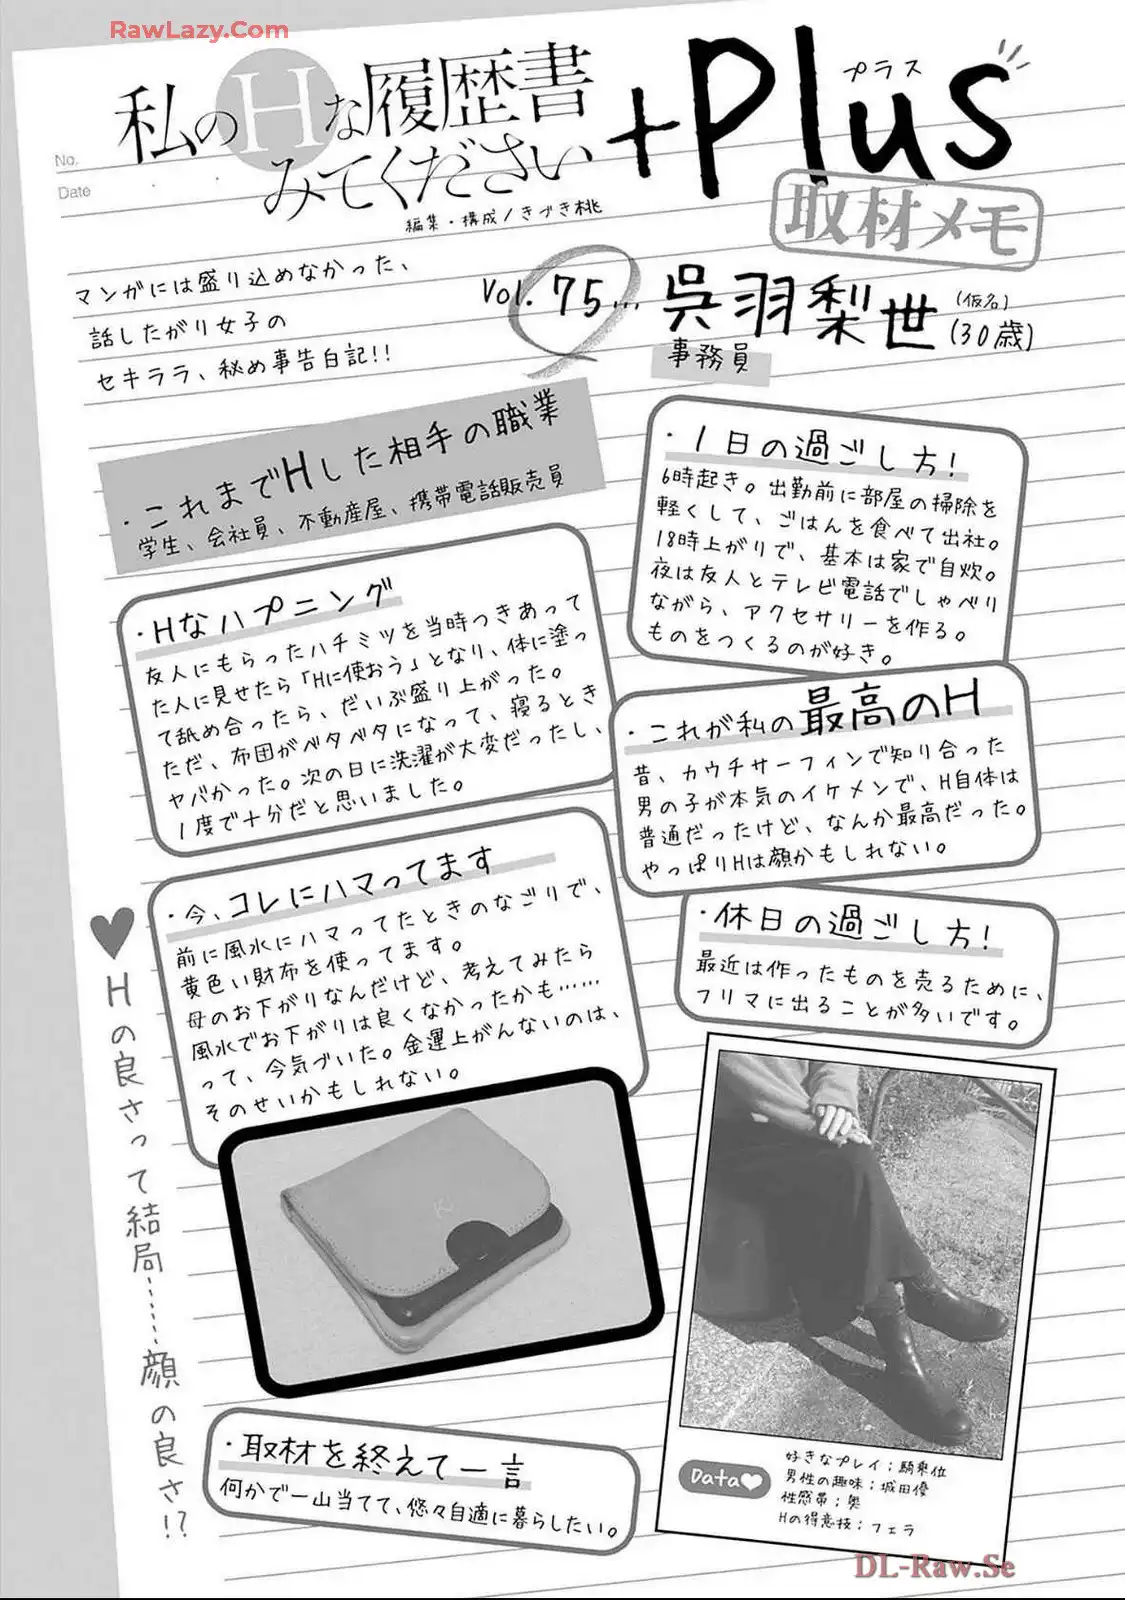 RawLazy.Com
私のHな履歴書
みてください
+Plus
プラス
取材メモ
No.
Date
編集・構成/きづき桃
マンガには盛り込めなかった、
話したがり女子の
セキララ、秘め事告白記!!
Vol. 75…
呉羽梨世
(仮名)
(30歳)
事務員
・これまでHした相手の職業
学生、会社員、不動産屋、携帯電話販売員
・1日の過ごし方!
6時起き。出勤前に部屋の掃除を
軽くして、ごはんを食べて出社。
18時上がりで、基本は家で自炊。
夜は友人とテレビ電話でしゃべり
ながら、アクセサリーを作る。
ものをつくるのが好き。
・Hなハプニング
友人にもらったハチミツを当時つきあって
た人に見せたら「Hに使おう」となり、体に塗っ
て舐め合ったら、だいぶ盛り上がった。
ただ、布団がベタベタになって、寝るとき
ヤバかった。次の日に洗濯が大変だったし、
1度で十分だと思いました。
・これが私の最高のH
昔、カウチサーフィンで知り合った
男の子が本気のイケメンで、H自体は
普通だったけど、なんか最高だった。
やっぱりHは顔かもしれない。
・今、コレにハマってます
前に風水にハマってたときのなごりで、
黄色い財布を使ってます。
母のお下がりなんだけど、考えてみたら
風水でお下がりは良くなかったかも……
って、今気づいた。金運上がんないのは、
そのせいかもしれない。
・休日の過ごし方!
最近は作ったものを売るために、
フリマに出ることが多いです。
♥Hの良さって結局……顔の良さ!?
・取材を終えて一言
何かで一山当てて、悠々自適に暮らしたい。
Data♥
好きなプレイ:騎乗位
男性の趣味:城田優
性感帯:奥
Hの得意技:フェラ
DL-Raw.Se